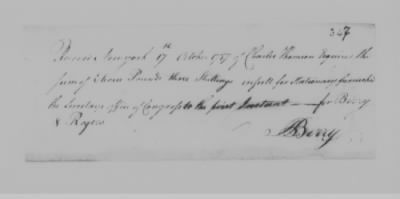 347
Received New york 17th October 1787 of Charles Thomson Esquire the
sum of Pounds three Shillings in full for Stationary furnished
the Secretary's Office of Congress to the first Instant — for Berry
& Rogers
Berry